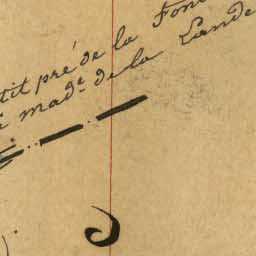 tit pré de la Fon
mad.e de la Lande